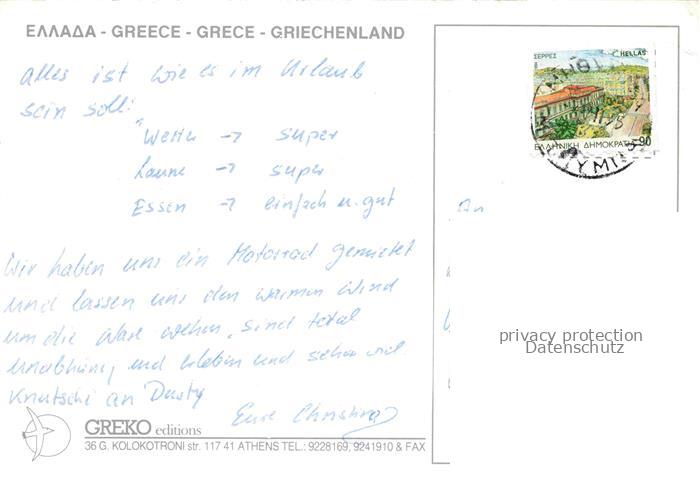 ΕΛΛΑΔΑ - GREECE - GRECE - GRIECHENLAND
alles ist wie es im Urlaub
sein soll:
Wetter → super
Laune → super
Essen → einfach u. gut
Wir haben uns ein Motorrad gemietet
und lassen uns den warmen Wind
um die Nase wehen, sind total
unabhängig und erleben und sehen viel
Knutschi an Dusty
Eure Christina
GREKO editions
36 G. KOLOKOTRONI str. 117 41 ATHENS TEL.: 9228169, 9241910 & FAX
ΣΕΡΡΕΣ HELLAS
ΕΛΛΗΝΙΚΗ ΔΗΜΟΚΡΑΤΙΑ 90
An
privacy protection
Datenschutz